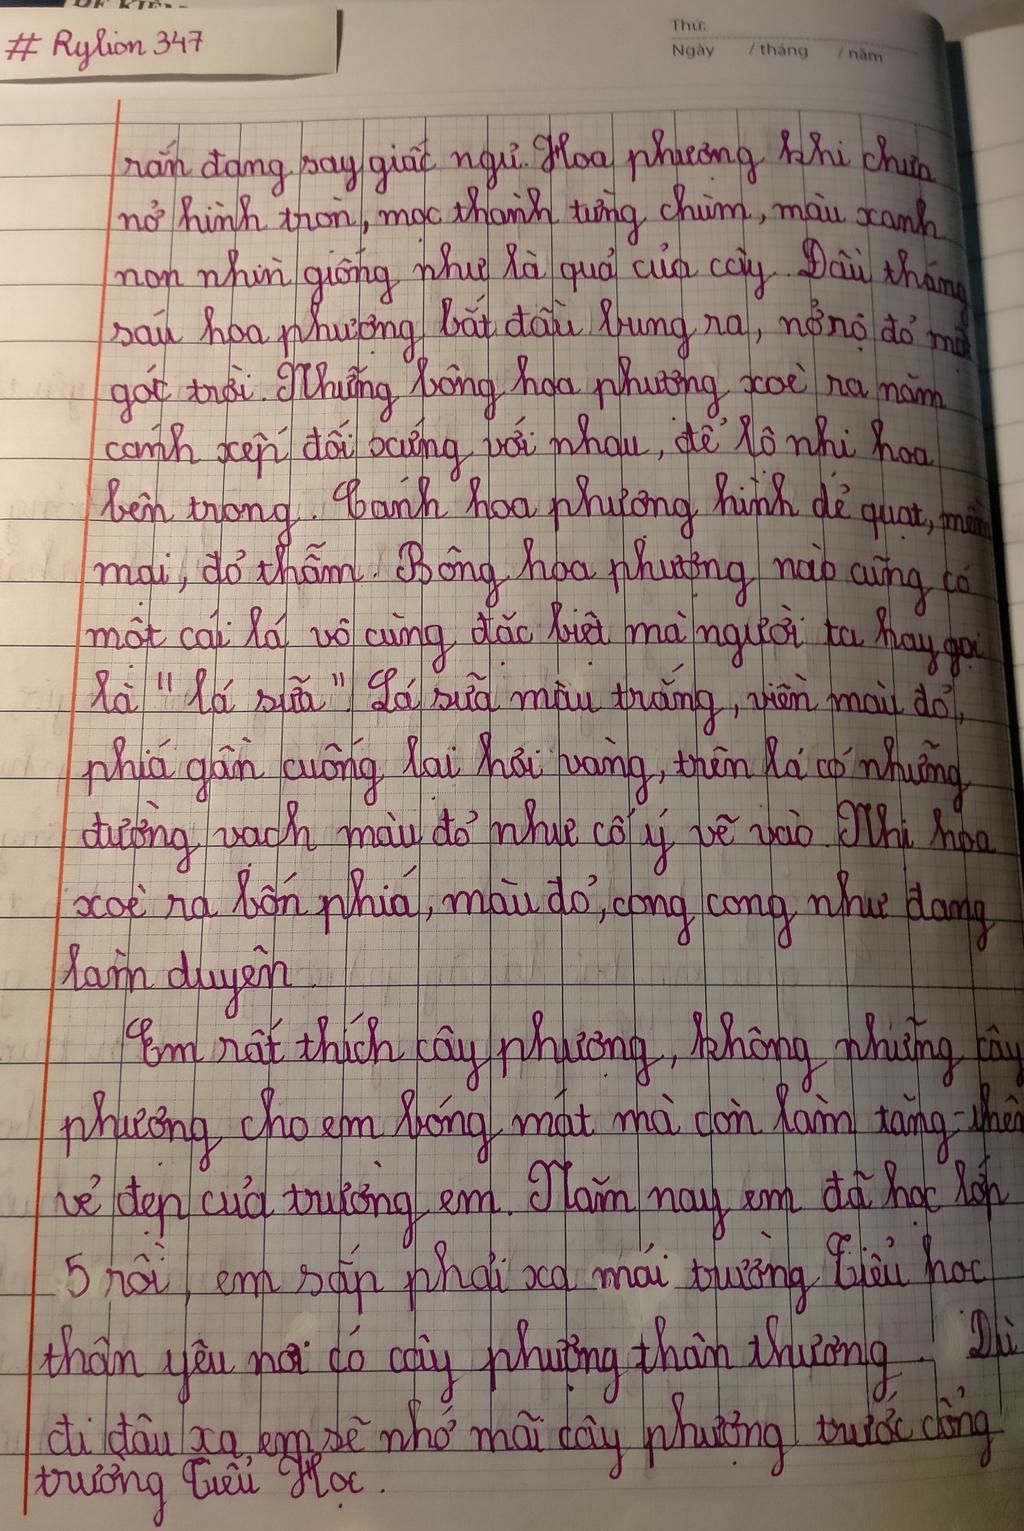 # Rylion 347
Thứ:
Ngày / tháng / năm
rắn đang say giấc ngủ. Hoa phượng khi chưa
nở hình tròn, mọc thành từng chùm, màu xanh
non nhìn giống như là quả của cây. Đầu tháng
sáu hoa phượng bắt đầu bung ra, nở rộ đỏ một
góc trời. Những bông hoa phượng xoè ra năm
cánh xếp đối xứng với nhau, để lộ nhị hoa
bên trong. Cánh hoa phượng hình dẻ quạt, mềm
mại, đỏ thẫm. Bông hoa phượng nào cũng có
một cái lá vô cùng đặc biệt mà người ta hay gọi
là "lá sữa". Lá sữa màu trắng, viền màu đỏ,
phía gần cuống lại hơi vàng, trên lá có những
đường vạch màu đỏ như cố ý vẽ vào. Nhị hoa
xoè ra bốn phía, màu đỏ, cong cong như đang
làm duyên.
Em rất thích cây phượng, không những cây
phượng cho em bóng mát mà còn làm tăng thêm
vẻ đẹp của trường em. Năm nay em đã học lớp
5 rồi, em sắp phải xa mái trường Tiểu học
thân yêu nơi có cây phượng thân thương. Dù
đi đâu xa em sẽ nhớ mãi cây phượng trước cổng
trường Tiểu Học.